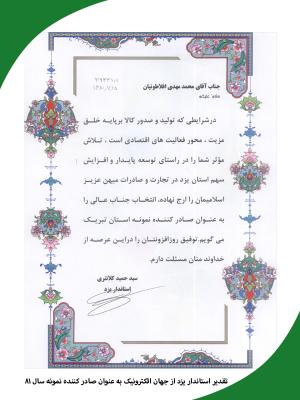 جناب آقای محمد مهدی افلاطونیان
درشرایطی که تولید و صدور کالا برپایه خلق
مزیت ، محور فعالیت های اقتصادی است ، تلاش
مؤثر شما را در راستای توسعه پایدار و افزایش
سهم استان یزد در تجارت و صادرات میهن عزیز
اسلامیمان را ارج نهاده، انتخاب جناب عالی را
به عنوان صادر کننده نمونه استان تبریک
می گویم.توفیق روزافزونتان را دراین عرصه از
خداوند منان مسئلت دارم.
سید حمید کلانتری
استاندار یزد
تقدیر استاندار یزد از جهان الکترونیک به عنوان صادر کننده نمونه سال ۸۱